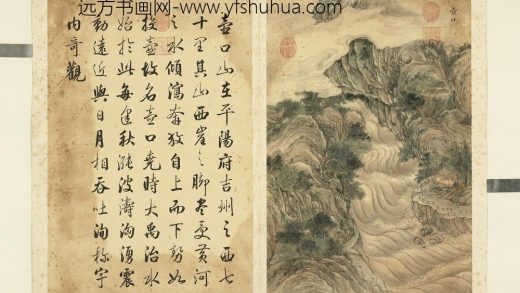 远方书画网-www.yfshuhua.com
壺口
壺口山在平陽府吉州之西七
十里其山西崖之脚盡受黄河
之水傾瀉奔放自上而下勢如
投壺故名壺口堯時大禹治水
始於此每逢秋漲波濤洶湧震
動遠近與日月相吞吐洵稱宇
内奇觀